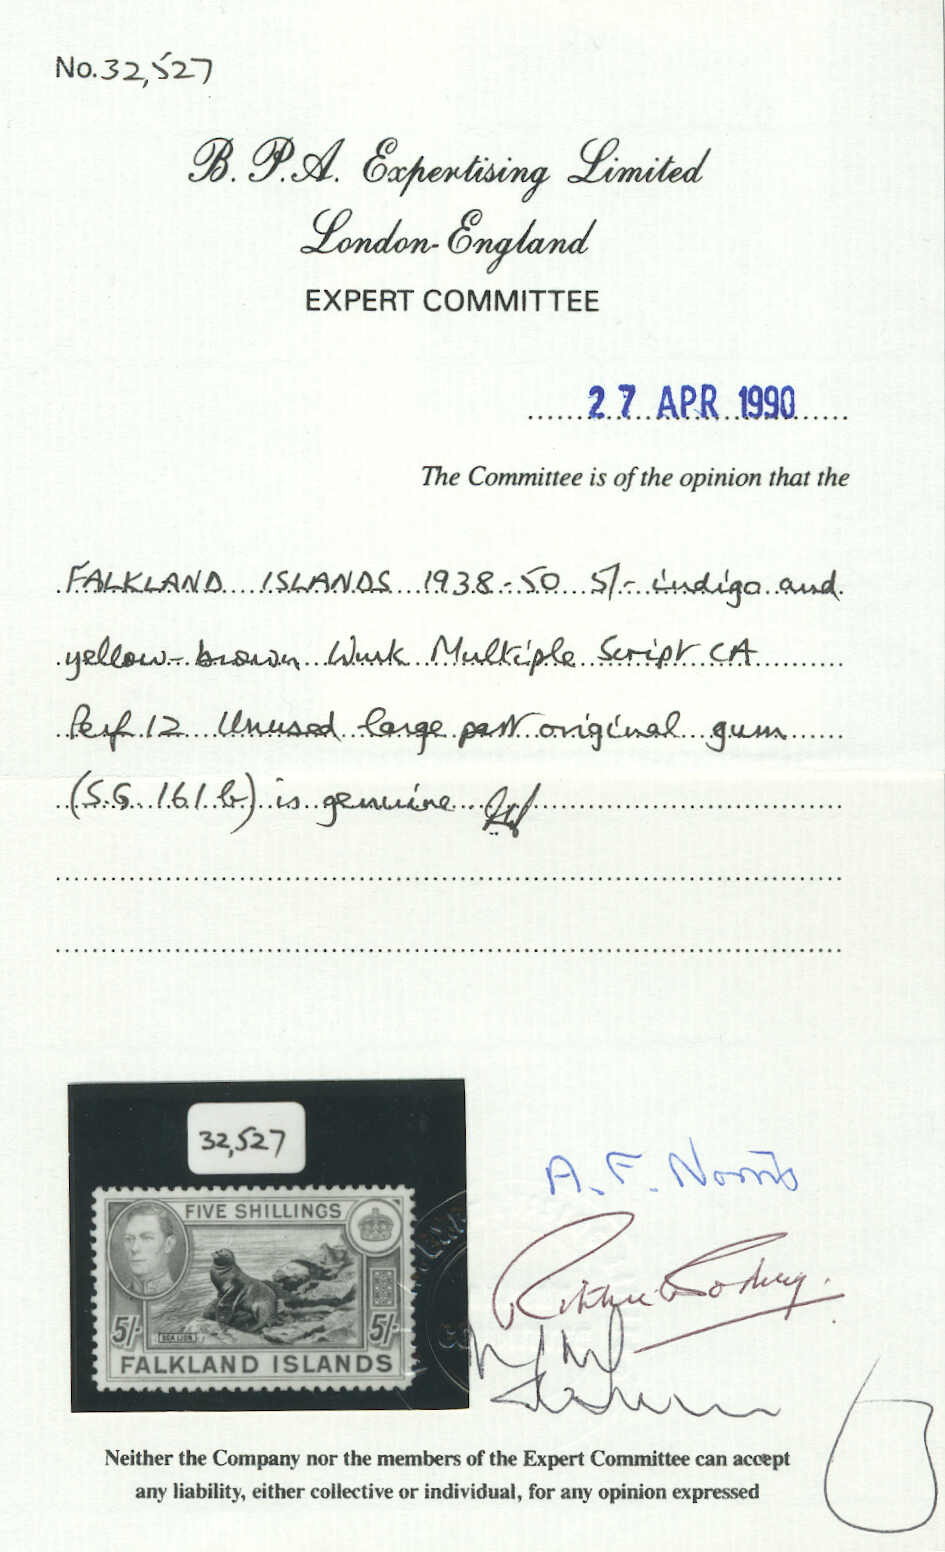 No. 32,527
B. P. A. Expertising Limited
London-England
EXPERT COMMITTEE
27 APR 1990
The Committee is of the opinion that the
FALKLAND ISLANDS 1938-50 5/- indigo and
yellow-brown Wmk Multiple Script CA
Perf 12 Unused large part original gum
(S.G. 161b) is genuine
32,527
FIVE SHILLINGS
5/- SEA LION 5/-
FALKLAND ISLANDS
A. F. Norris
Neither the Company nor the members of the Expert Committee can accept
any liability, either collective or individual, for any opinion expressed